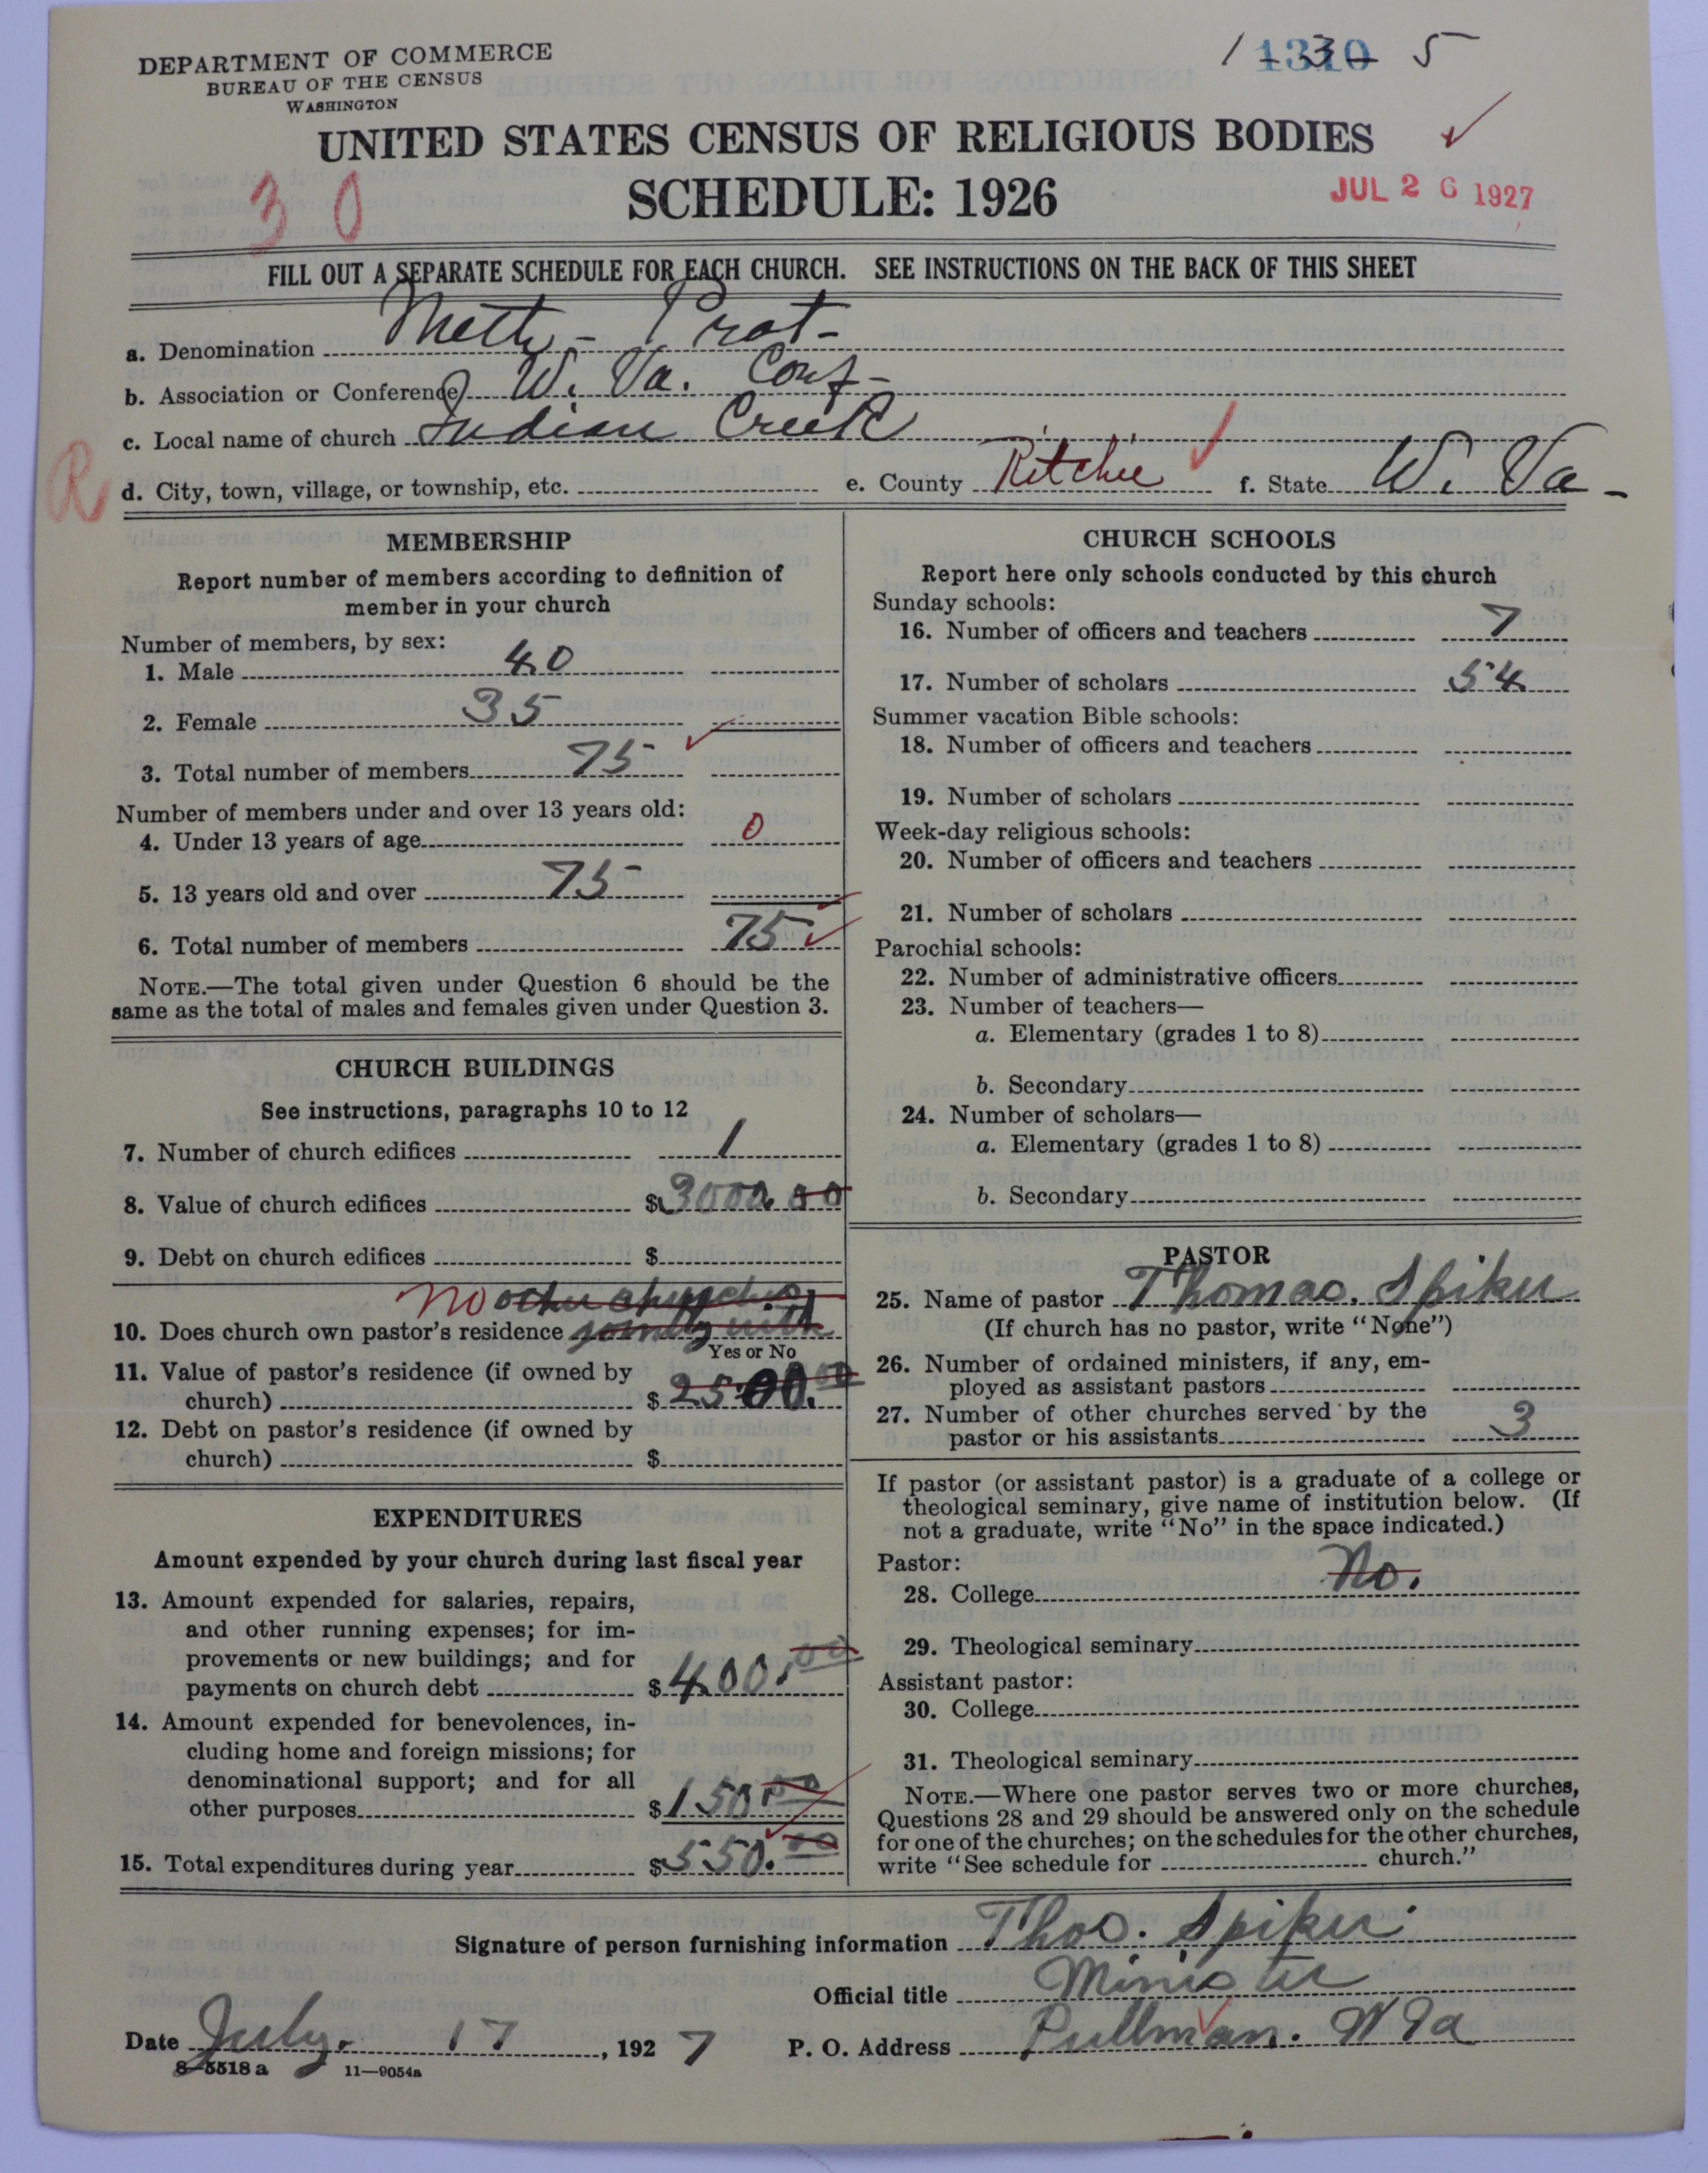 DEPARTMENT OF COMMERCE
BUREAU OF THE CENSUS
WASHINGTON
1 5
UNITED STATES CENSUS OF RELIGIOUS BODIES
SCHEDULE: 1926
30
JUL 26 1927
FILL OUT A SEPARATE SCHEDULE FOR EACH CHURCH. SEE INSTRUCTIONS ON THE BACK OF THIS SHEET
a. Denomination Meth - Prot -
b. Association or Conference W. Va. Conf -
c. Local name of church Indian Creek
R
d. City, town, village, or township, etc. e. County Ritchie f. State W. Va -
MEMBERSHIP
Report number of members according to definition of
member in your church
Number of members, by sex:
1. Male 40
2. Female 35
3. Total number of members 75
Number of members under and over 13 years old:
4. Under 13 years of age 0
5. 13 years old and over 75
6. Total number of members 75
NOTE.—The total given under Question 6 should be the
same as the total of males and females given under Question 3.
CHURCH BUILDINGS
See instructions, paragraphs 10 to 12
7. Number of church edifices 1
8. Value of church edifices $3000.00
9. Debt on church edifices $
No other churches
10. Does church own pastor's residence jointly with
Yes or No
11. Value of pastor's residence (if owned by
church) $2500.00
12. Debt on pastor's residence (if owned by
church) $
EXPENDITURES
Amount expended by your church during last fiscal year
13. Amount expended for salaries, repairs,
and other running expenses; for im-
provements or new buildings; and for
payments on church debt $400.00
14. Amount expended for benevolences, in-
cluding home and foreign missions; for
denominational support; and for all
other purposes $150.00
15. Total expenditures during year $550.00
CHURCH SCHOOLS
Report here only schools conducted by this church
Sunday schools:
16. Number of officers and teachers 7
17. Number of scholars 54
Summer vacation Bible schools:
18. Number of officers and teachers
19. Number of scholars
Week-day religious schools:
20. Number of officers and teachers
21. Number of scholars
Parochial schools:
22. Number of administrative officers
23. Number of teachers—
a. Elementary (grades 1 to 8)
b. Secondary
24. Number of scholars—
a. Elementary (grades 1 to 8)
b. Secondary
PASTOR
25. Name of pastor Thomas. Spiker
(If church has no pastor, write "None")
26. Number of ordained ministers, if any, em-
ployed as assistant pastors
27. Number of other churches served by the
pastor or his assistants 3
If pastor (or assistant pastor) is a graduate of a college or
theological seminary, give name of institution below. (If
not a graduate, write "No" in the space indicated.)
Pastor:
28. College No.
29. Theological seminary
Assistant pastor:
30. College
31. Theological seminary
NOTE.—Where one pastor serves two or more churches,
Questions 28 and 29 should be answered only on the schedule
for one of the churches; on the schedules for the other churches,
write "See schedule for church."
Signature of person furnishing information Thos. Spiker
Official title Minister
Date July. 17, 1927 P. O. Address Pullman. W Va
8-5518 a 11-9054a